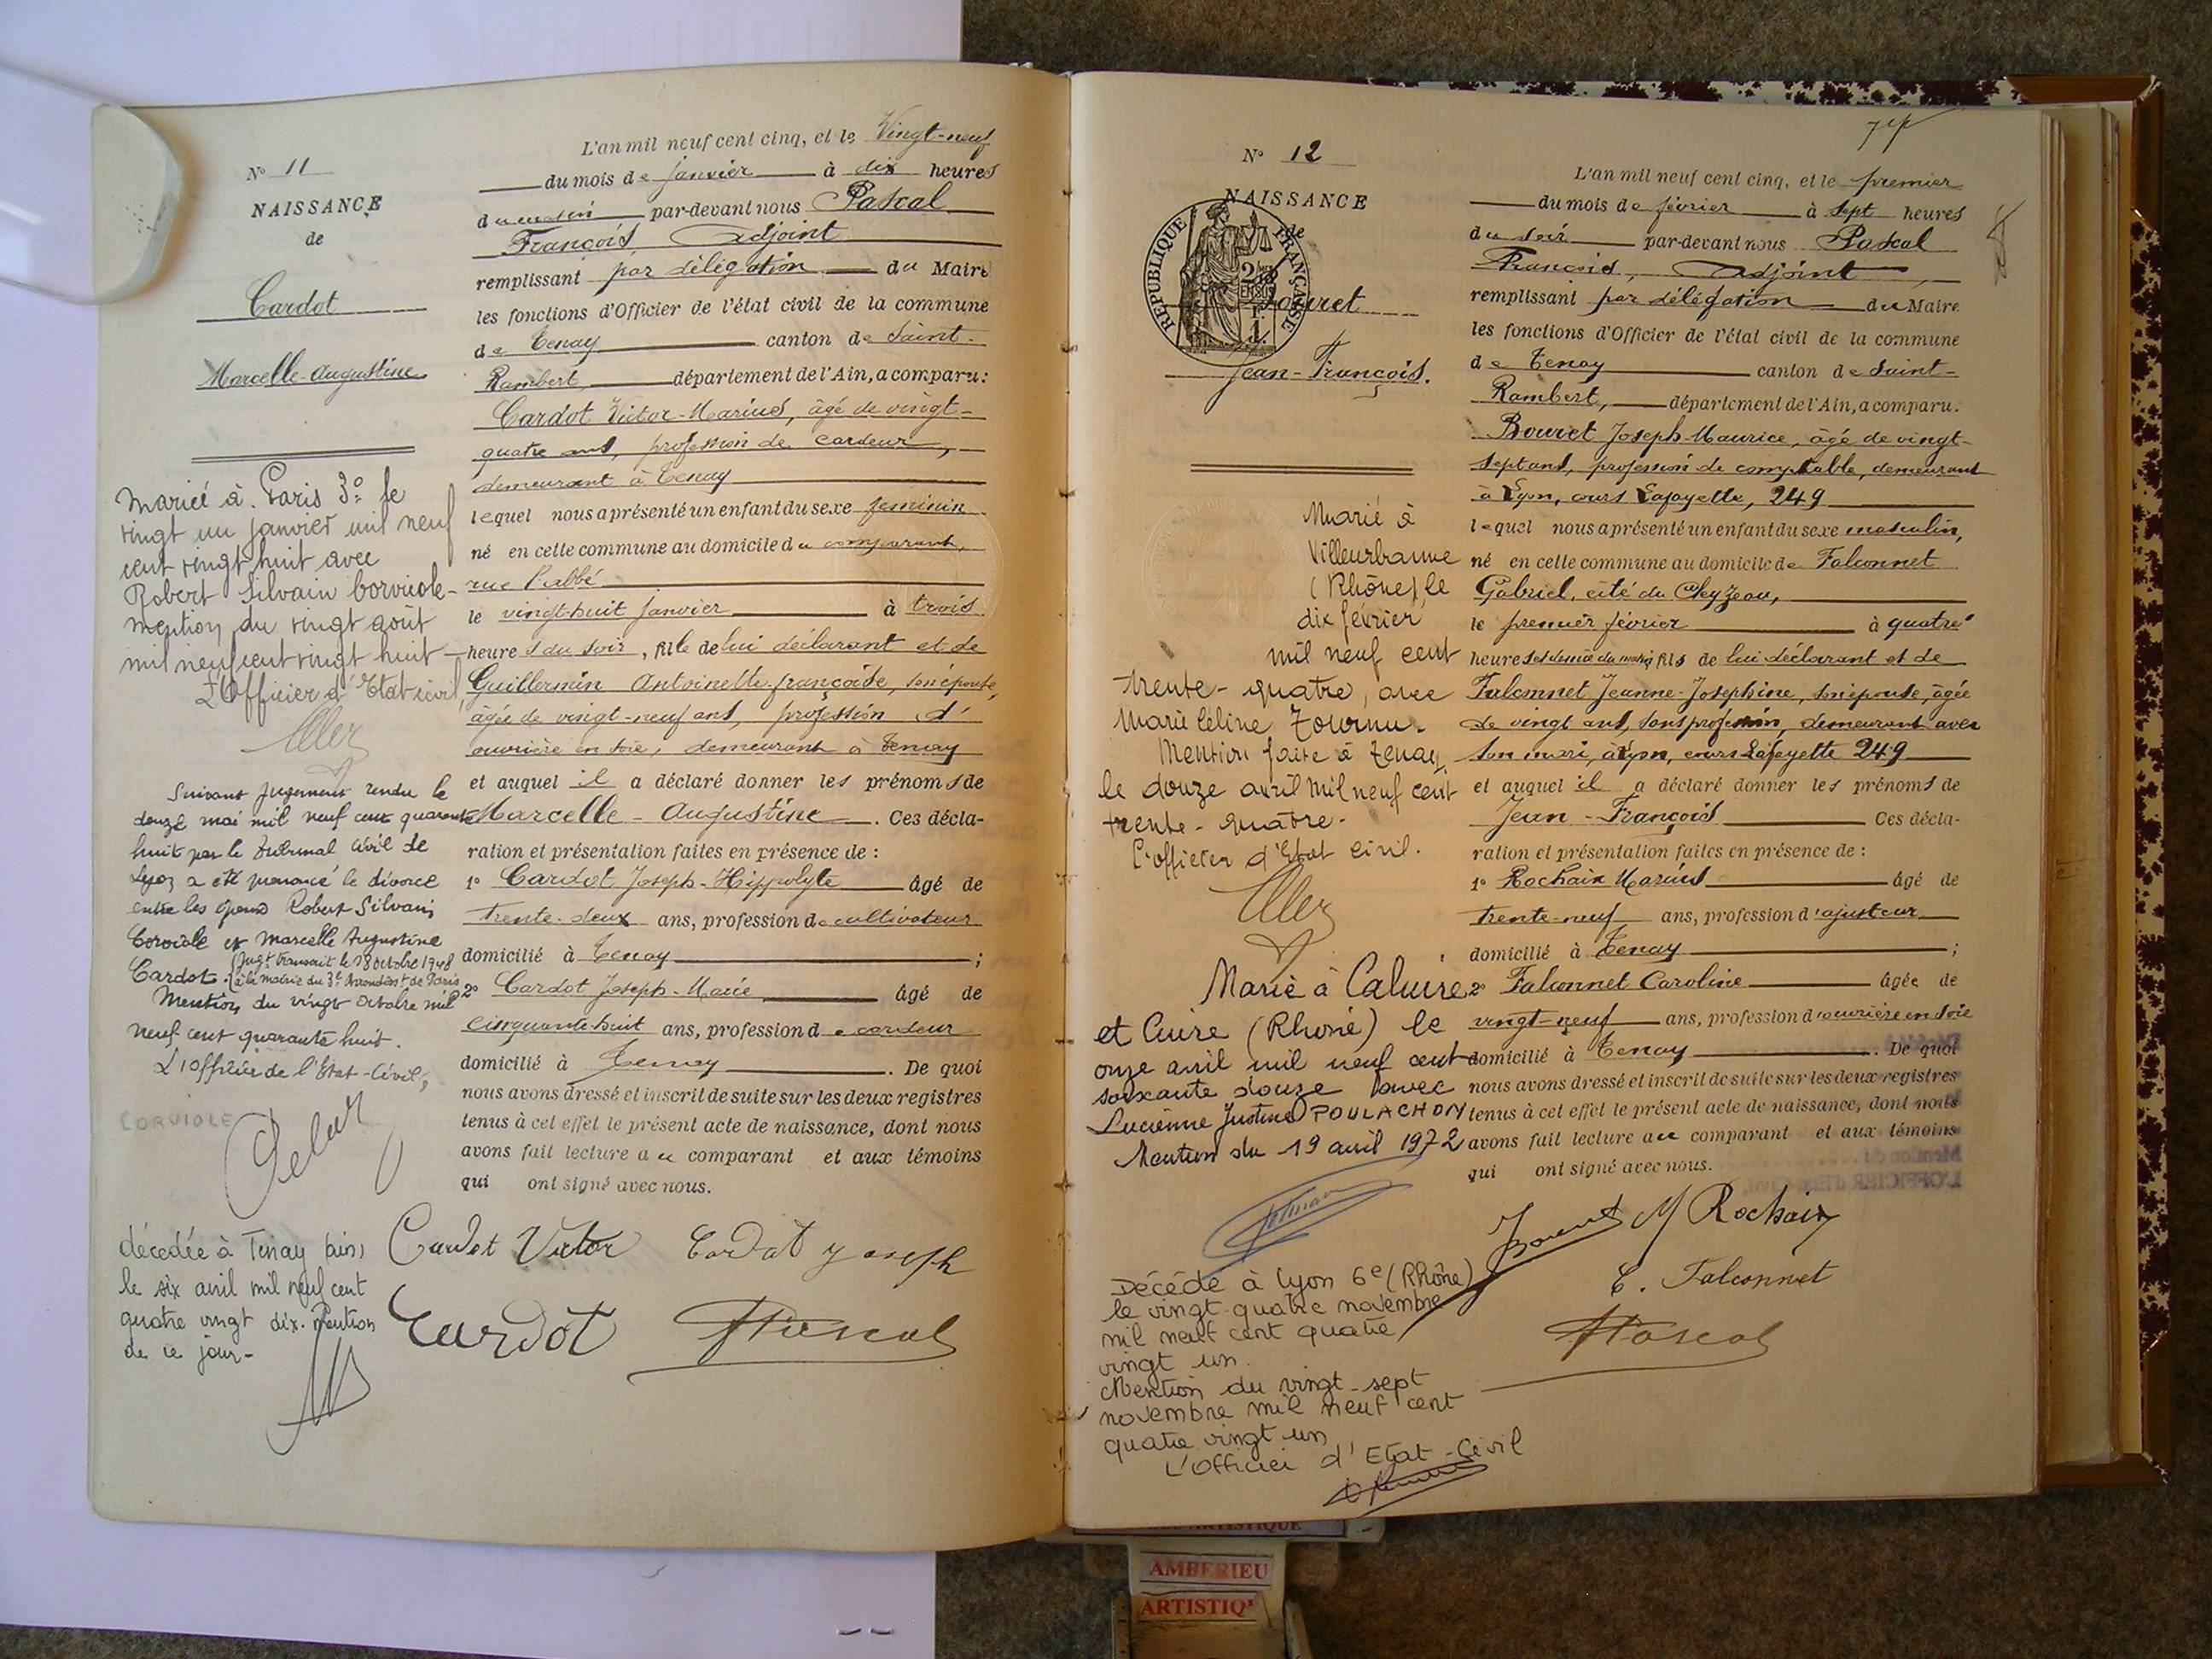 N° 11
NAISSANCE
de
Cardot
Marcelle-Augustine
Mariée à Paris 3e le
vingt un janvier mil neuf
cent vingt huit avec
Robert Silvain Corviole-
mention du vingt août
mil neuf cent vingt huit-
L'Officier d'Etat civil,
Suivant jugement rendu le
douze mai mil neuf cent quarante
huit par le tribunal civil de
Lyon a été prononcé le divorce
entre les époux Robert Silvain
Corviole et Marcelle Augustine
Cardot. (Jugt transcrit le 18 octobre 1948
à la mairie du 3e Arrondisst de Paris
Mention du vingt octobre mil
neuf cent quarante huit.
L'Officier de l'Etat-Civil,
CORVIOLE
décédée à Tenay (Ain)
le six avril mil neuf cent
quatre vingt dix. Mention
de ce jour-
L'an mil neuf cent cinq, et le Vingt-neuf
du mois de janvier à dix heures
du matin par-devant nous Pascal
François Adjoint
remplissant par délégation du Maire
les fonctions d'Officier de l'état civil de la commune
de Tenay canton de Saint-
Rambert, département de l'Ain, a comparu:
Cardot Victor-Marius, âgé de vingt-
quatre ans, profession de cardeur,
demeurant à Tenay
lequel nous a présenté un enfant du sexe féminin
né en cette commune au domicile du comparant,
rue l'abbé
le vingt-huit janvier à trois
heures du soir, fille de lui déclarant et de
Guillermin Antoinette-françoise, son épouse,
âgée de vingt-neuf ans, profession d'
ouvrière en soie, demeurant à Tenay
et auquel il a déclaré donner les prénoms de
Marcelle-Augustine. Ces décla-
ration et présentation faites en présence de :
1° Cardot Joseph-Hippolyte âgé de
trente-deux ans, profession de cultivateur
domicilié à Tenay ;
2° Cardot Joseph-Marie âgé de
cinquante-huit ans, profession de cardeur
domicilié à Tenay. De quoi
nous avons dressé et inscrit de suite sur les deux registres
tenus à cet effet le présent acte de naissance, dont nous
avons fait lecture au comparant et aux témoins
qui ont signé avec nous.
Cardot Victor Cardot Joseph
Cardot Pascal
N° 12
NAISSANCE
de
RÉPUBLIQUE FRANÇAISE
Bouret
Jean-François.
Marié à
Villeurbanne
(Rhône) le
dix février
mil neuf cent
trente-quatre, avec
Marie Céline Tournu.
Mention faite à Tenay
le douze avril mil neuf cent
trente-quatre-
L'officier d'Etat Civil.
Marié à Caluire
et Cuire (Rhône) le
onze avril mil neuf cent
soixante douze avec
Lucienne Justine POULACHON
Mention du 19 avril 1972
Décédé à Lyon 6e (Rhône)
le vingt-quatre novembre
mil neuf cent quatre
vingt un.
Mention du vingt-sept
novembre mil neuf cent
quatre vingt un
L'Officier d'Etat-Civil
L'an mil neuf cent cinq, et le premier
du mois de février à sept heures
du soir par-devant nous Pascal
François, Adjoint,
remplissant par délégation du Maire
les fonctions d'Officier de l'état civil de la commune
de Tenay canton de Saint-
Rambert, département de l'Ain, a comparu:
Bouret Joseph-Maurice, âgé de vingt-
sept ans, profession de comptable, demeurant
à Lyon, cours Lafayette, 249
lequel nous a présenté un enfant du sexe masculin,
né en cette commune au domicile de Falconnet
Gabriel, cité du Cleyzeau,
le premier février à quatre
heures et demie du matin fils de lui déclarant et de
Falconnet Jeanne-Joséphine, son épouse, âgée
de vingt ans, sans profession, demeurant avec
son mari, à Lyon, cours Lafayette 249
et auquel il a déclaré donner les prénoms de
Jean-François Ces décla-
ration et présentation faites en présence de :
1° Rochaix Marius âgé de
trente-neuf ans, profession d'ajusteur
domicilié à Tenay ;
2° Falconnet Caroline âgée de
vingt-neuf ans, profession d'ouvrière en soie
domicilié à Tenay. De quoi
nous avons dressé et inscrit de suite sur les deux registres
tenus à cet effet le présent acte de naissance, dont nous
avons fait lecture au comparant et aux témoins
qui ont signé avec nous.
Bouret M Rochaix
C. Falconnet
Pascal
AMBERIEU
ARTISTIQ'